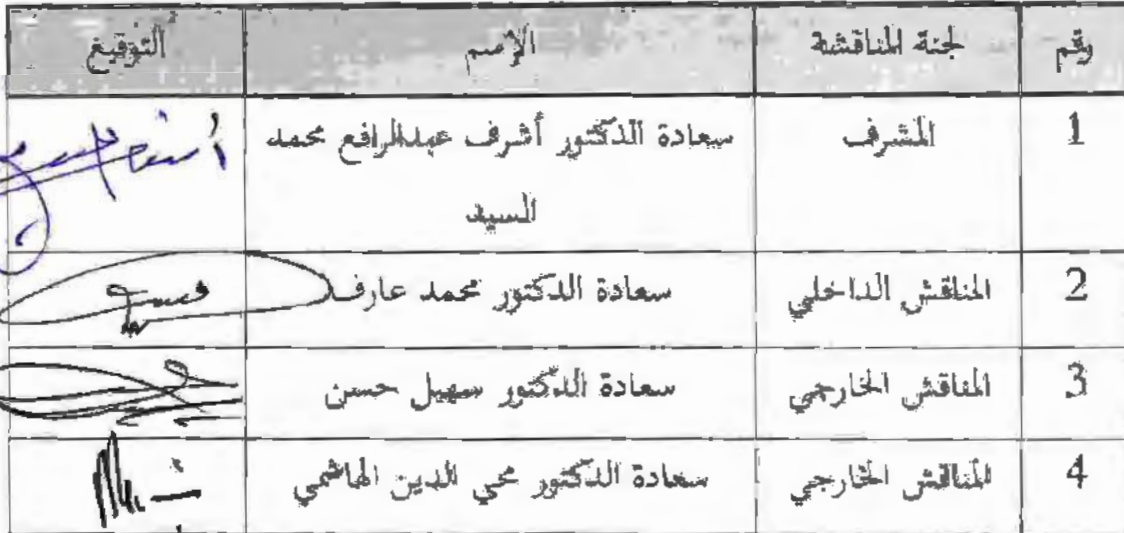 رقم لجنة المناقشة الإسم التوقيع
1 المشرف سعادة الدكتور أشرف عبدالرافع محمد
السيد
2 المناقش الداخلي سعادة الدكتور محمد عارف
3 المناقش الخارجي سعادة الدكتور سهيل حسن
4 المناقش الخارجي سعادة الدكتور محي الدين الهاشمي